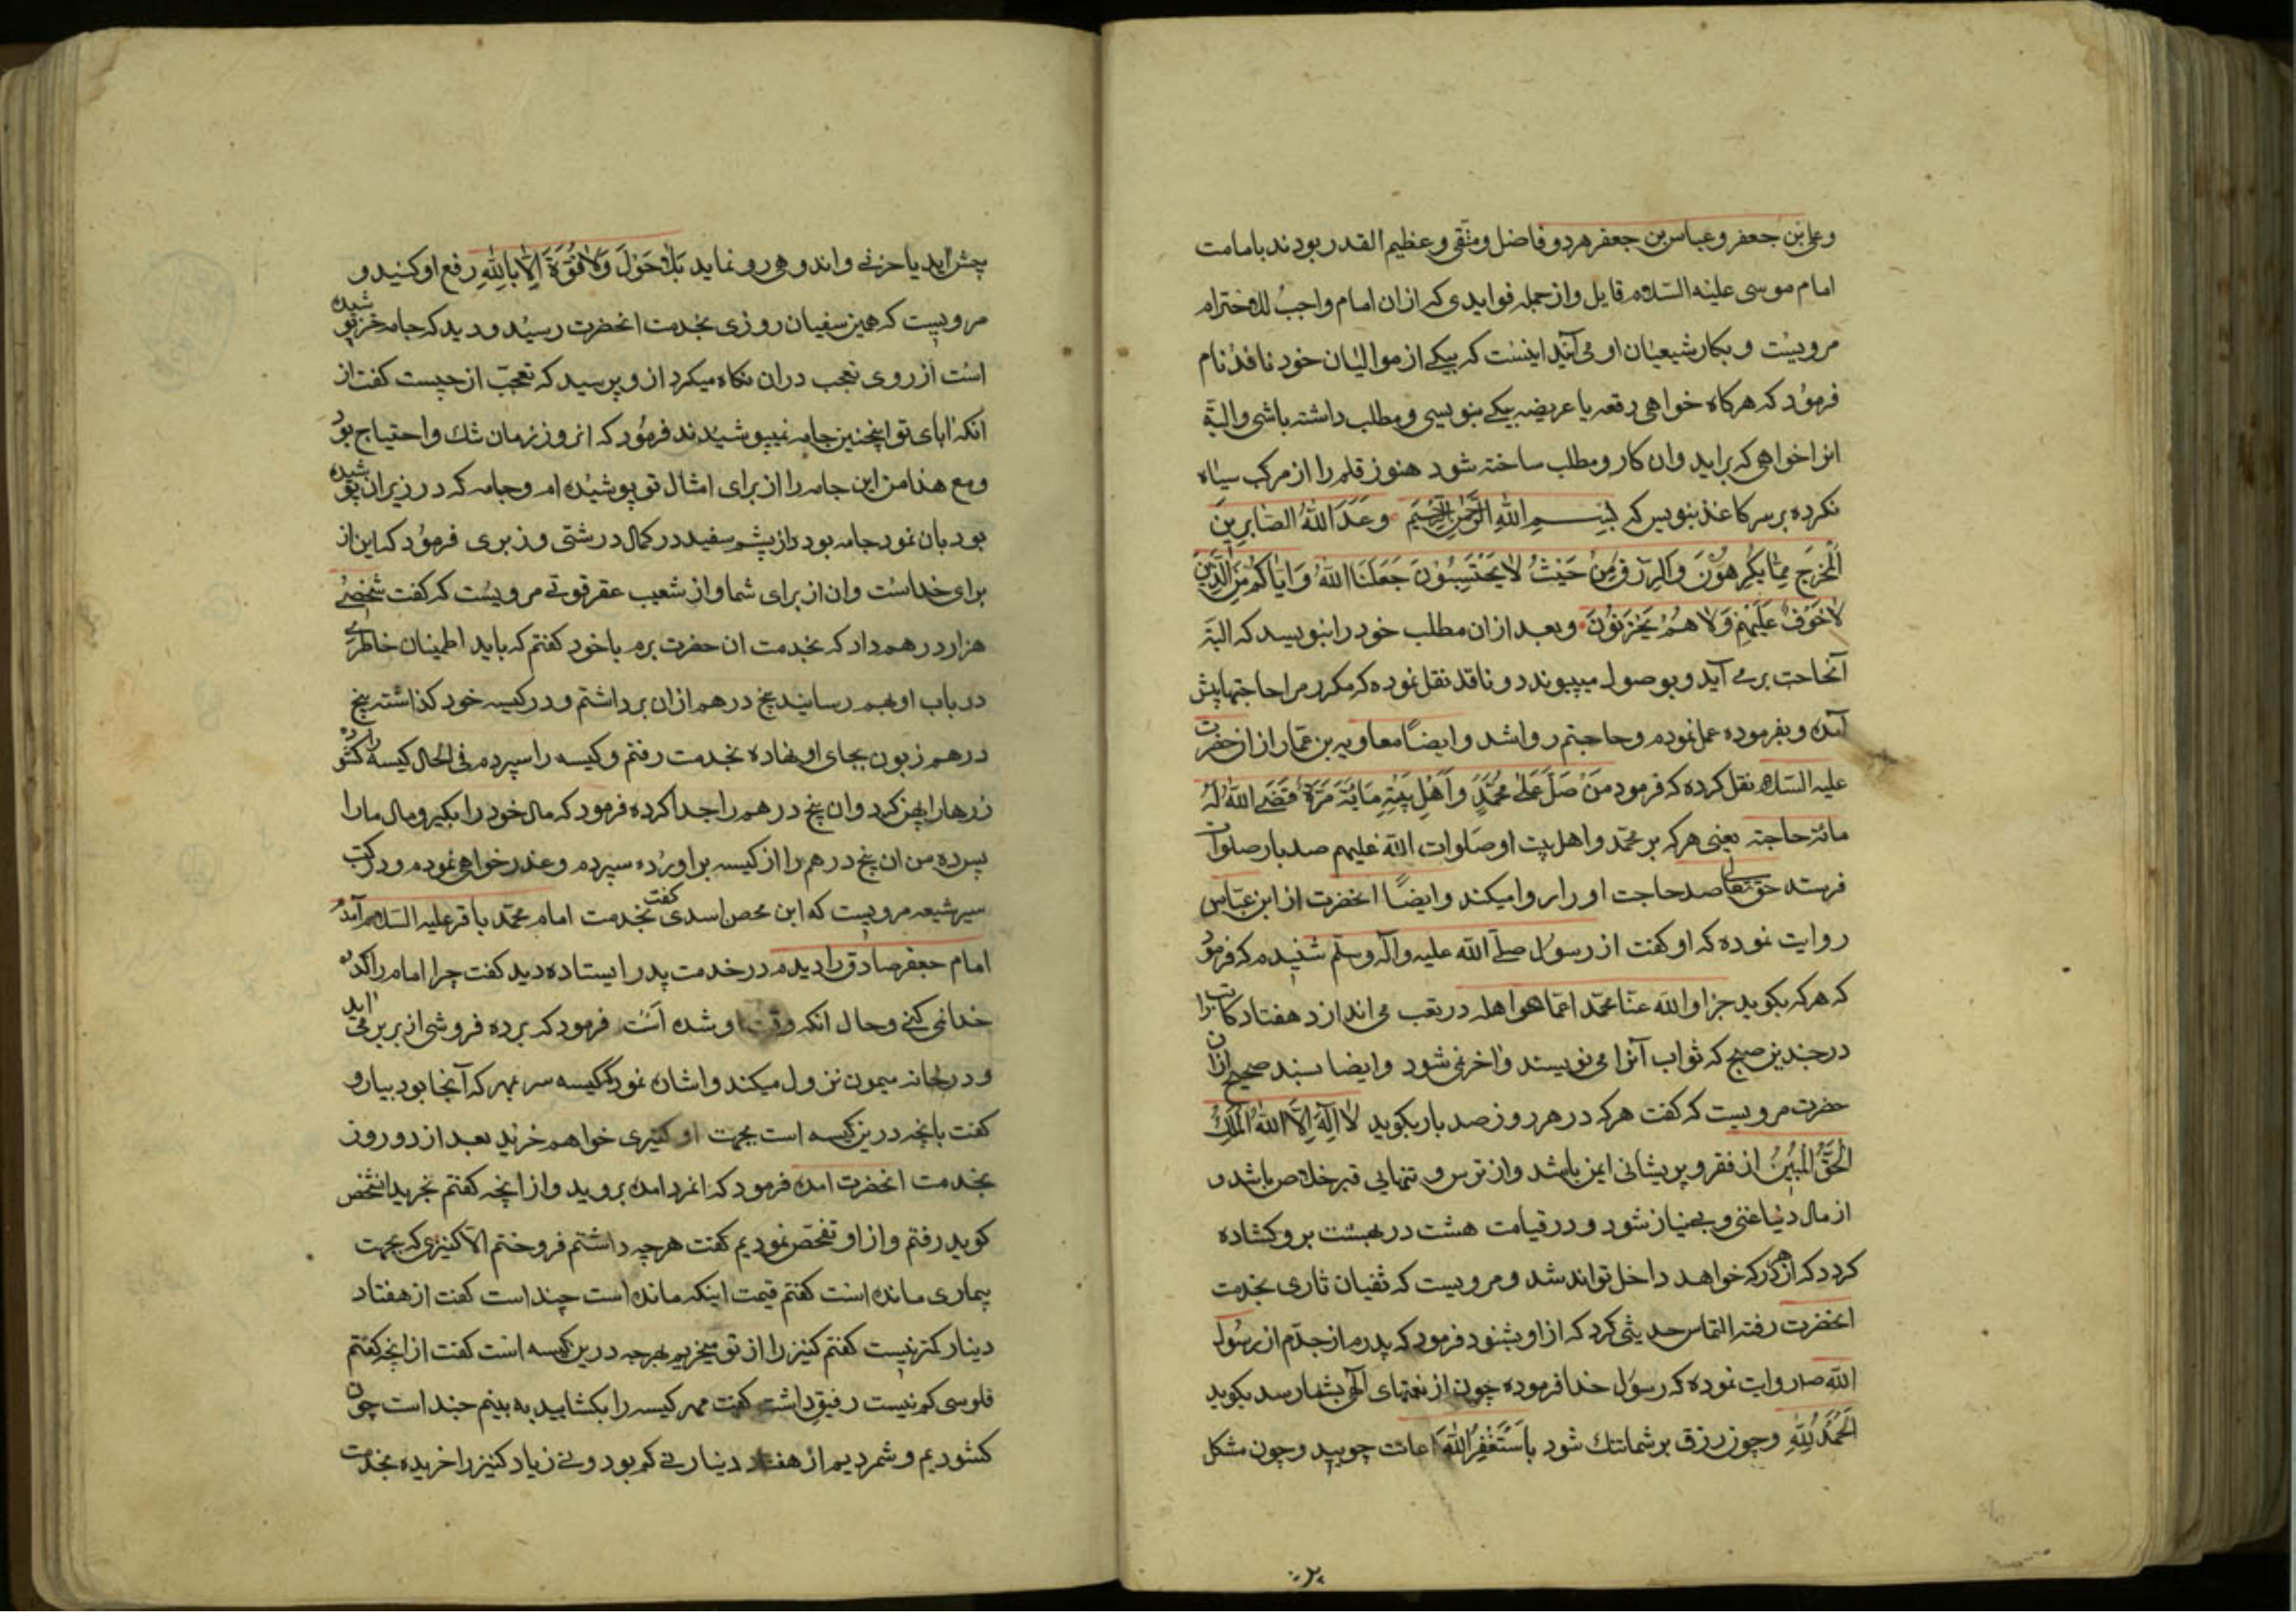 وعلی بن جعفر وعباس بن جعفر هردو فاضل ومتقی وعظیم القدر بودند بامامت
امام موسی علیه السلام قایل واز جمله فوایدی که ازان امام واجب الاحترام
مرویست وبکار شیعیان او می آید اینست که بیکے از موالیان خود نافذ نام
فرمود که هرکاه خواهی رقعه یا عریضه بیکے بنویسی ومطلب داشته باشی والبتة
انرا خواهی که براید وان کار ومطلب ساخته شود هنوز قلم را از مرکب سیاه
نکرده برسر کاغذ بنویس که بِسْمِ اللهِ الرَّحْمٰنِ الرَّحِیمِ وعَدَ اللهُ الصّابِرِینَ
الْمَخرَجَ مِمّا یَکرَهُونَ وَالرِزْقَ مِنْ حَیْثُ لایَحْتَسِبُوْنَ جَعَلَنَا اللهُ وَاِیّاکُمْ مِنَ الَّذِیْنَ
لاخَوْفٌ عَلَیْهِمْ وَلا هُمْ یَحْزَنُوْنَ وبعد ازان مطلب خود را بنویسد که البتة
آنحاجت برمے آید وبوصول میپیوندد ونافذ نقل نموده که مکرر مرا حاجتها پیش
آمده وبفرموده عمل نمودم وحاجتم روا شد وایضاً معاویه بن عمار از ان حضرت
علیه السلام نقل کرده که فرمود مَنْ صَلّ عَلی مُحَمَّدٍ وَاَهْلِ بَیْتِهِ مِایَةَ مَرَّةٍ قَضَے اللهُ لَهُ
مائة حاجته یعنی هرکه بر محمد واهل بیت او صلوات الله علیهم صد بار صلوات
فرستد حق تعالی صد حاجت او را روا میکند وایضاً انحضرت از ابن عباس
روایت نموده که او کفت از رسول صلے الله علیه وآله وسلم شنیدم که فرمود
که هرکه بکوید جزا والله عنّا محمّد اعمّا هو اهله در تعب می اندازد هفتاد کاتب را
در چندین صبح که ثواب آنرا می نویسند واخر نمی شود وایضا بسند صحیح از ان
حضرت مرویست که کفت هرکه در هر روز صد بار بکوید لا اِلٰهَ اِلاَّ اللهُ المَلِکُ
الحَقُّ المُبِیْنُ از فقر وپریشانی ایمن باشد واز ترس و تنهایی قبر خلاص باشد و
از مال دنیا غنی وبےنیاز شود ودر قیامت هشت در بهشت بر وکشاده
کردد که از هر در که خواهد داخل تواند شد ومرویست که ثفیان ثاری بخدمت
انحضرت رفته التماس حدیثی کرد که از او بشنود فرمود که پدرم از جدّم از رسول
الله ص روایت نموده که رسول خدا فرموده چون از نعمتهای الٰهی بشما رسد بکوید
اَلحَمْدُ لِلّهِ وچون رزق بر شما تنک شود بِاَسْتَغْفِرُ اللهَ اعانت جویید وچون مشکل
پیش اید یا حزنے واندوهی رو نماید بَلا حَوْلَ وَلا قُوَّةَ اِلاّ بِاللهِ رفع او کنید و
مرویست که همین سفیان روزی بخدمت انحضرت رسید ودید که جامه خز پوشیده
است از روی تعجب دران نکاه میکرد از و پرسید که تعجب از چیست کفت از
انکه ابای تو اینچنین جامه نمیپوشیدند فرمود که انروز زمان تنک واحتیاج بود
ومع هذا من این جامه را از برای امثال تو پوشیده ام وجامه که در زیر ان پوشیده
بود بان نمود جامه بود از پشم سفید در کمال درشتی وزبری فرمود که این از
برای خداست وان از برای شما واز شعیب عقرقوتے مرویست که کفت شخصے
هزار درهم داد که بخدمت ان حضرت برم با خود کفتم که باید اطمینان خاطرے
در باب او بهم رسانید پنج درهم ازان برداشتم ودر کیسه خود کذاشته پنج
درهم زبون بجای او نهاده بخدمت رفتم وکیسه را سپردم فی الحال کیسه را کشوده
زرها را پهن کرد وان پنج درهم را جدا کرده فرمود که مال خود را بکیر ومال مارا
پس ده من ان پنج درهم را از کیسه براورده سپردم وعذرخواهی نمودم ودر کتب
سیر شیعه مرویست که ابن محصن اسدی کفت بخدمت امام محمد باقر علیه السلام آمدم
امام جعفر صادق را دیدم در خدمت پدر ایستاده دید کفت چرا امام را کد
خدا نمی کنے وحال انکه وقت او شده است فرمود که برده فروشی از بربر می اید
ودر خانه میمون نزول میکند واشان نمود که کیسه سر بمهر که آنجا بود بیار و
کفت بانچه درین کیسه است بجهت او کنیزی خواهم خرید بعد از دو روز
بخدمت انحضرت امده فرمود که انمرد امده بروید واز انچه کفتم بخرید انشخص
کوید رفتم واز او تفحص نمودیم کفت هرچه داشتم فروختم الا کنیزی که بجهت
بیماری مانده است کفتم قیمت اینکه مانده است چند است کفت از هفتاد
دینار کمتر نیست کفتم کنیز را از تو میخریم بهرچه درین کیسه است کفت از انچه کفتم
فلوسی کم نیست رفیق داشت کفت مهر کیسه را بکشایید به بینم چند است چون
کشودیم وشمردیم از هفتاد دینار نے کم بود ونے زیاد کنیز را خریده بخدمت